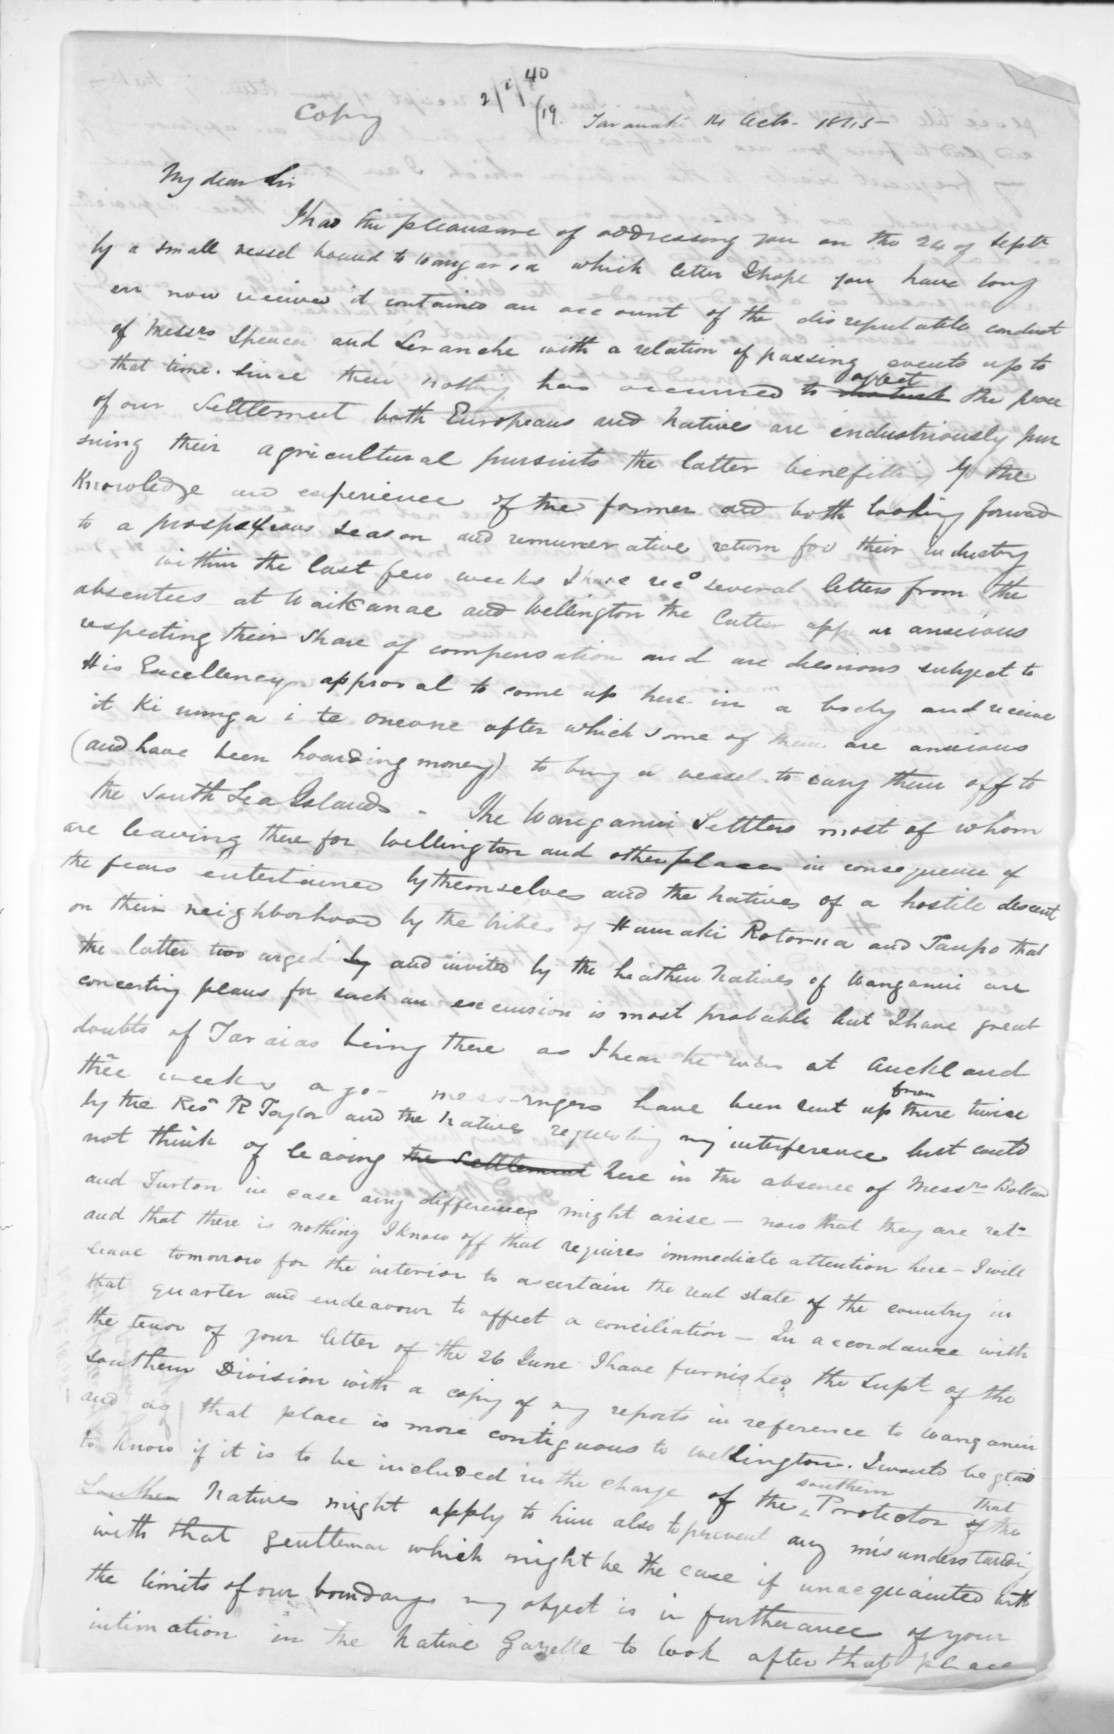 Copy
2/2/40
/19.
Taranaki 14 Octr. 1845-
My dear Sir
I had the pleasure of addressing you on the 24 of Septr
by a small vessel bound to Wangaroa which letter I hope you have long
ere now received it contained an account of the disreputable conduct
of Messrs Spencer and Seranche with a relation of passing events up to
that time. Since then nothing has occurred to affect the peace
of our Settlement both Europeans and Natives are industriously pur
suing their agricultural pursuits the latter benefitting by the
Knowledge and experience of the former and both looking forward
to a prosperous season and remunerative return for their industry
within the last few weeks I have recd several letters from the
absentees at Waikanae and Wellington the latter appear anxious
respecting their share of compensation and are desirous subject to
His Excellency approval to come up here in a body and receive
it Ki runga i te oneone after which some of them are anxious
(and have been hoarding money) to buy a vessel to cary them off to
the South Sea Islands - The Wanganui Settlers most of whom
are leaving there for Wellington and other places in consequence of
the fears entertained by themselves and the natives of a hostile descent
on their neighborhood by the tribes of Hauraki Rotorua and Taupo that
the latter two urged by and invited by the heathen Natives of Wanganui are
concerting plans for such an excursion is most probable but I have great
doubts of Taraias being there as I hear he was at Auckland
three weeks ago - messengers have been sent up from there twice
by the Revd R Taylor and the Natives requesting my interference but could
not think of leaving the Settlement here in the absence of Messrs Bolland
and Turton in case any differences might arise - now that they are retd
and that there is nothing I know off that requires immediate attention here - I will
leave tomorrow for the interior to ascertain the real state of the country in
that quarter and endeavour to affect a conciliation - In accordance with
the tenor of your letter of the 26 June I have furnished the Supt of the
Southern Division with a copy of my reports in reference to Wanganui
and as that place is more contiguous to Wellington. I would be glad
to know if it is to be included in the charge of the southern Protector that
Southern Natives might apply to him also to prevent any misunderstanding
with that gentleman which might be the case if unacquainted with
the limits of our boundary my object is in furtherance of your
intimation in the Native Gazette to look after that place